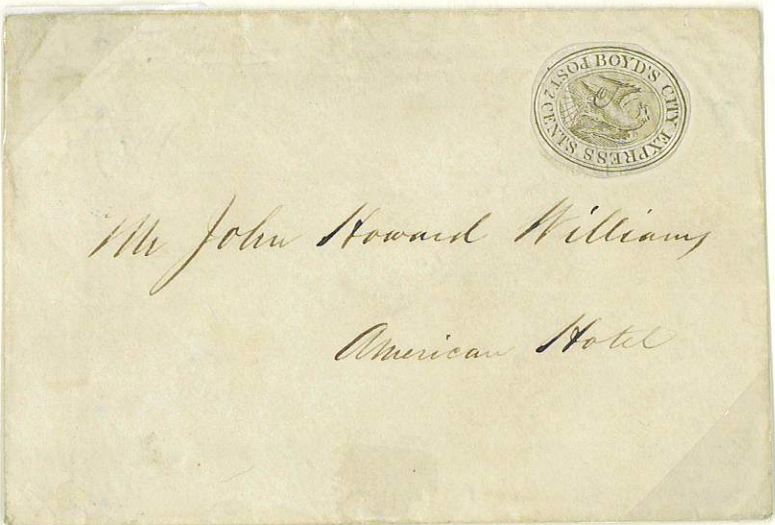 BOYD'S CITY EXPRESS POST 2 CENTS
Mr John Howard Williams
American Hotel